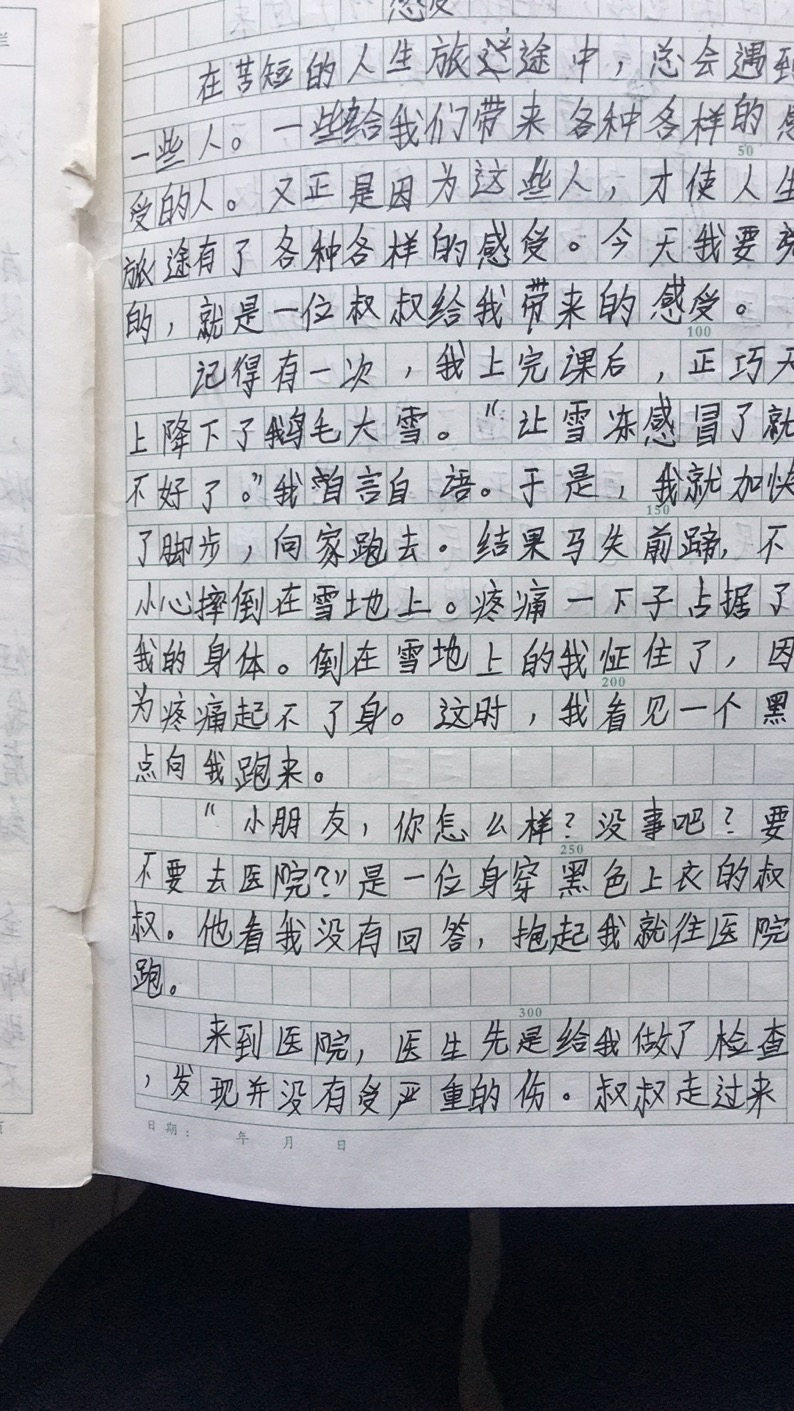 感受
在苦短的人生旅途中，总会遇到
一些人。一些给我们带来各种各样的感
受的人。又正是因为这些人，才使人生
旅途有了各种各样的感受。今天我要说
的，就是一位叔叔给我带来的感受。
记得有一次，我上完课后，正巧天
上降下了鹅毛大雪。“让雪冻感冒了就
不好了。”我自言自语。于是，我就加快
了脚步，向家跑去。结果马失前蹄，不
小心摔倒在雪地上。疼痛一下子占据了
我的身体。倒在雪地上的我怔住了，因
为疼痛起不了身。这时，我看见一个黑
点向我跑来。
“小朋友，你怎么样？没事吧？要
不要去医院？”是一位身穿黑色上衣的叔
叔。他看我没有回答，抱起我就往医院
跑。
来到医院，医生先是给我做了检查
，发现并没有受严重的伤。叔叔走过来
50
100
150
200
250
300
日期： 年 月 日